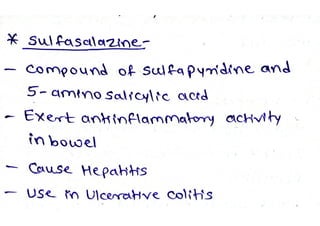 * Sulfasalazine-
- Compound of sulfapyridine and
5-amino salicylic acid
- Exert antiinflammatory activity
in bowel
- Cause Hepatitis
- Use in Ulcerative colitis